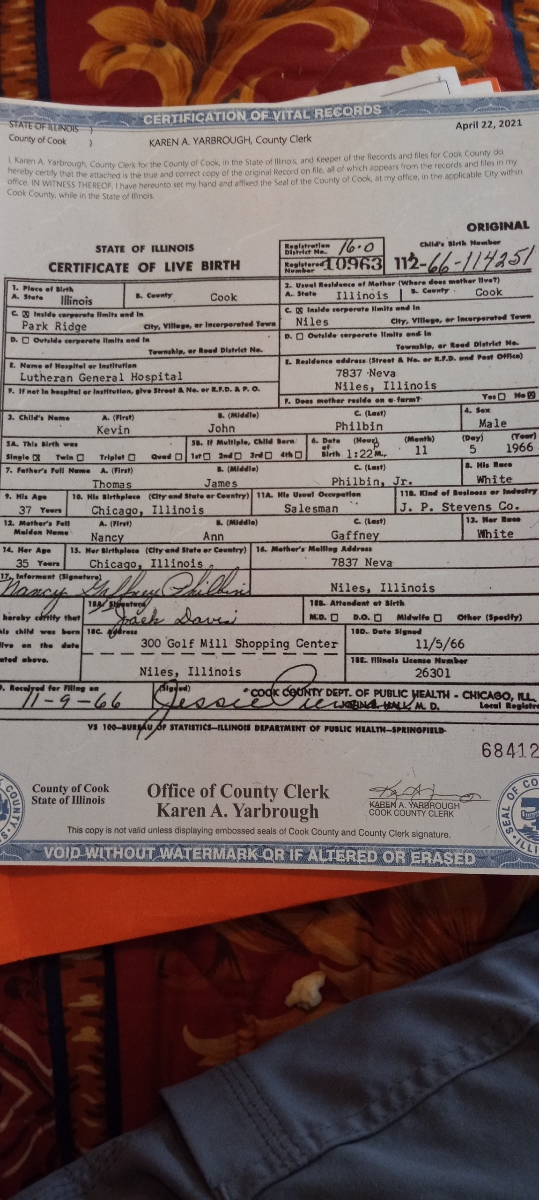 CERTIFICATION OF VITAL RECORDS
STATE OF ILLINOIS )
County of Cook )
KAREN A. YARBROUGH, County Clerk
April 22, 2021
I, Karen A. Yarbrough, County Clerk for the County of Cook, in the State of Illinois, and Keeper of the Records and files for Cook County do
hereby certify that the attached is the true and correct copy of the original Record on file, all of which appears from the records and files in my
office. IN WITNESS THEREOF, I have hereunto set my hand and affixed the Seal of the County of Cook, at my office, in the applicable City within
Cook County, while in the State of Illinois.
ORIGINAL
STATE OF ILLINOIS
CERTIFICATE OF LIVE BIRTH
Registration District No. 16.0
Registered Number 10963
Child's Birth Number
112-66-114251
1. Place of Birth
A. State Illinois B. County Cook
2. Usual Residence of Mother (Where does mother live?)
A. State Illinois B. County Cook
C. ☒ Inside corporate limits and in
Park Ridge City, Village, or Incorporated Town
C. ☒ Inside corporate limits and in
Niles City, Village, or Incorporated Town
D. ☐ Outside corporate limits and in
Township, or Road District No.
D. ☐ Outside corporate limits and in
Township, or Road District No.
E. Name of Hospital or Institution
Lutheran General Hospital
E. Residence address (Street & No. or R.F.D. and Post Office)
7837 Neva
Niles, Illinois
F. If not in hospital or institution, give Street & No. or R.F.D. & P. O.
F. Does mother reside on a farm? Yes ☐ No ☒
3. Child's Name A. (First) B. (Middle) C. (Last)
Kevin John Philbin
4. Sex
Male
5A. This Birth was
Single ☒ Twin ☐ Triplet ☐ Quad ☐
5B. If Multiple, Child Born
1st ☐ 2nd ☐ 3rd ☐ 4th ☐
6. Date of Birth (Hour) (Month) (Day) (Year)
1:22 P M. 11 5 1966
7. Father's Full Name A. (First) B. (Middle) C. (Last)
Thomas James Philbin, Jr.
8. His Race
White
9. His Age
37 Years
10. His Birthplace (City and State or Country)
Chicago, Illinois
11A. His Usual Occupation
Salesman
11B. Kind of Business or Industry
J. P. Stevens Co.
12. Mother's Full Maiden Name A. (First) B. (Middle) C. (Last)
Nancy Ann Gaffney
13. Her Race
White
14. Her Age
35 Years
15. Her Birthplace (City and State or Country)
Chicago, Illinois
16. Mother's Mailing Address
7837 Neva
Niles, Illinois
17. Informant (Signature)
Nancy Gaffney Philbin
hereby certify that
his child was born
live on the date
ated above.
18A. Signature
Jack Davis
18B. Attendant at Birth
M.D. ☐ D.O. ☐ Midwife ☐ Other (Specify)
18C. Address
300 Golf Mill Shopping Center
Niles, Illinois
18D. Date Signed
11/5/66
18E. Illinois License Number
26301
9. Received for Filing on
11-9-66
(Signed)
Jessie
COOK COUNTY DEPT. OF PUBLIC HEALTH - CHICAGO, ILL.
JOHN B. HALL, M. D. Local Registra
VS 100-BUREAU OF STATISTICS-ILLINOIS DEPARTMENT OF PUBLIC HEALTH-SPRINGFIELD
68412
County of Cook
State of Illinois
Office of County Clerk
Karen A. Yarbrough
KAREN A. YARBROUGH
COOK COUNTY CLERK
This copy is not valid unless displaying embossed seals of Cook County and County Clerk signature.
COUNTY
SEAL OF CO
ILLI
VOID WITHOUT WATERMARK OR IF ALTERED OR ERASED